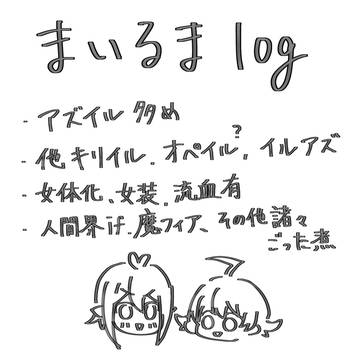 まいるまlog
- アズイル多め
?
- 他キリイル、オペイル、イルアズ
- 女体化、女装、流血有
- 人間界if、魔フィア、その他諸々
ごった煮